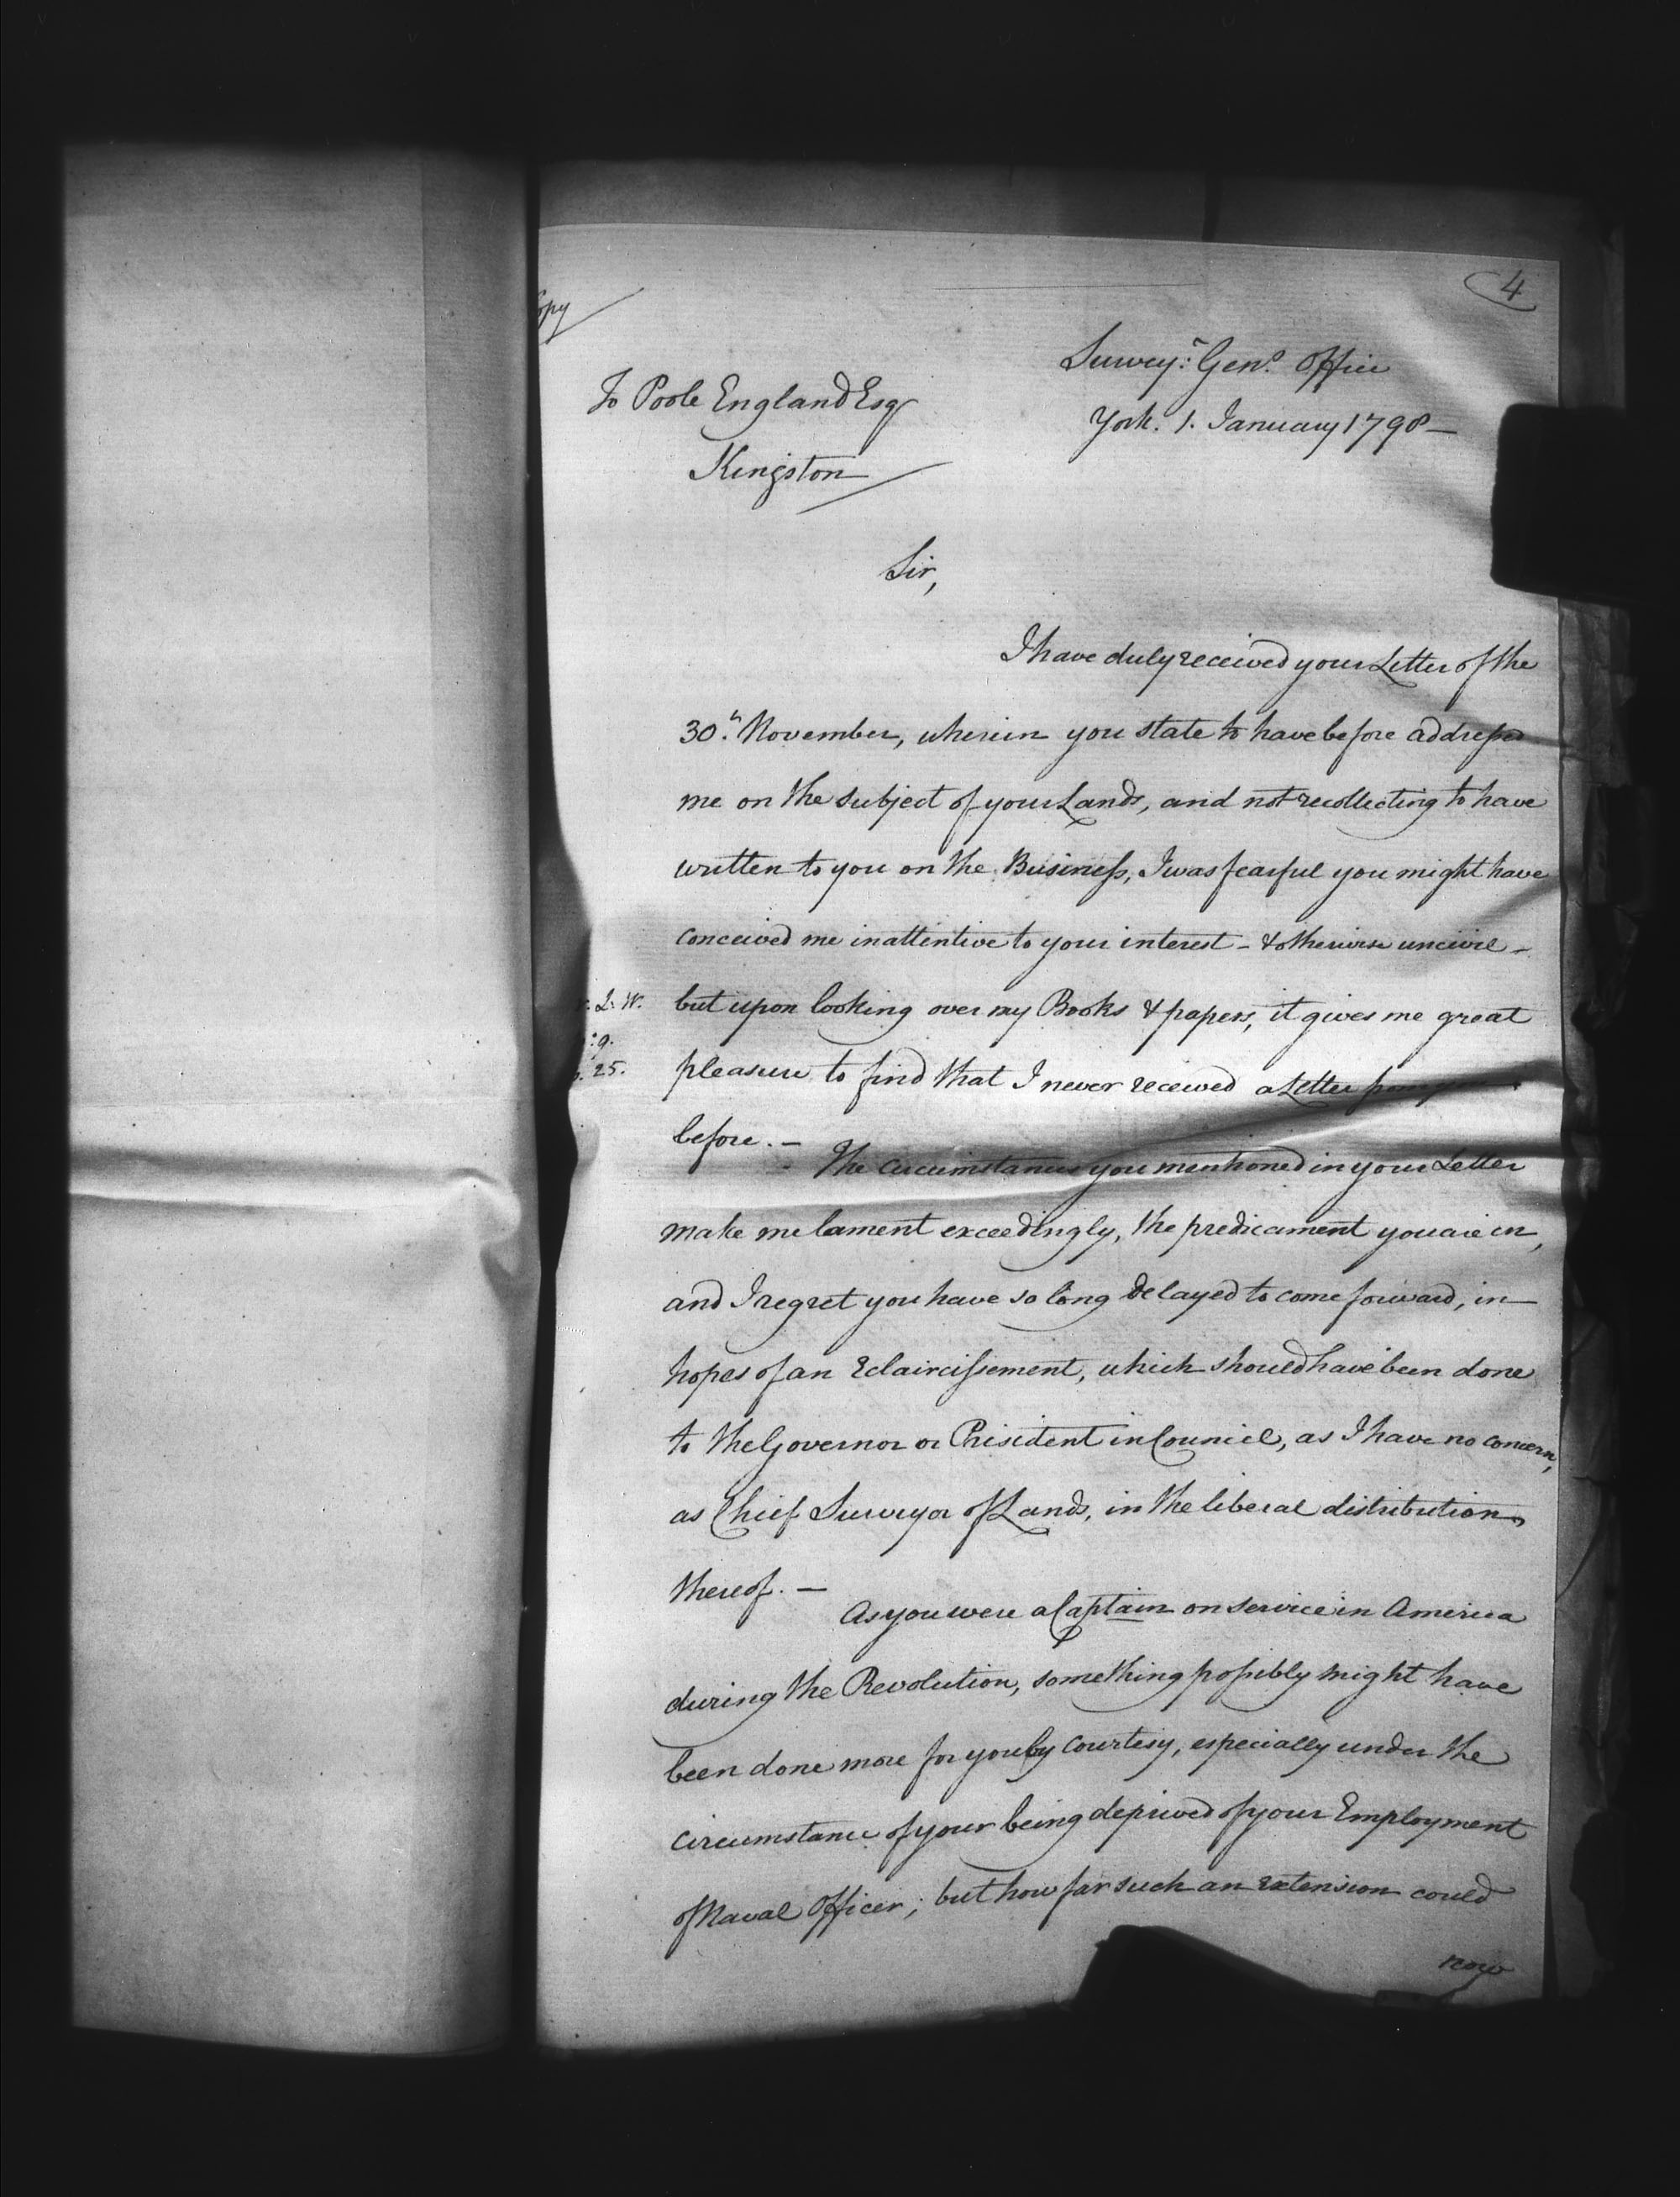 4
opy
Survey.r Gen.l Office
To Poole England Esqr
York. 1. January 1798 —
Kingston
Sir,
I have duly received your Letter of the
30.h November, wherein you state to have before addressed
me on the subject of your Lands, and not recollecting to have
written to you on the Business, I was fearful you might have
conceived me inattentive to your interest - & otherwise uncivil -
L. W.
but upon looking over my Books & papers, it gives me great
9.
25.
pleasure to find that I never received a Letter from you
before. —
The circumstances you mentioned in your Letter
make me lament exceedingly, the predicament you are in,
and I regret you have so long delayed to come forward, in
hopes of an Eclaircissement, which should have been done
to the Governor or President in Council, as I have no concern,
as Chief Surveyor of Lands, in the liberal distribution
thereof. —
As you were a Captain on service in America
during the Revolution, something possibly might have
been done more for you by courtesy, especially under the
circumstance of your being deprived of your Employment
of Naval Officer; but how far such an extension could
now